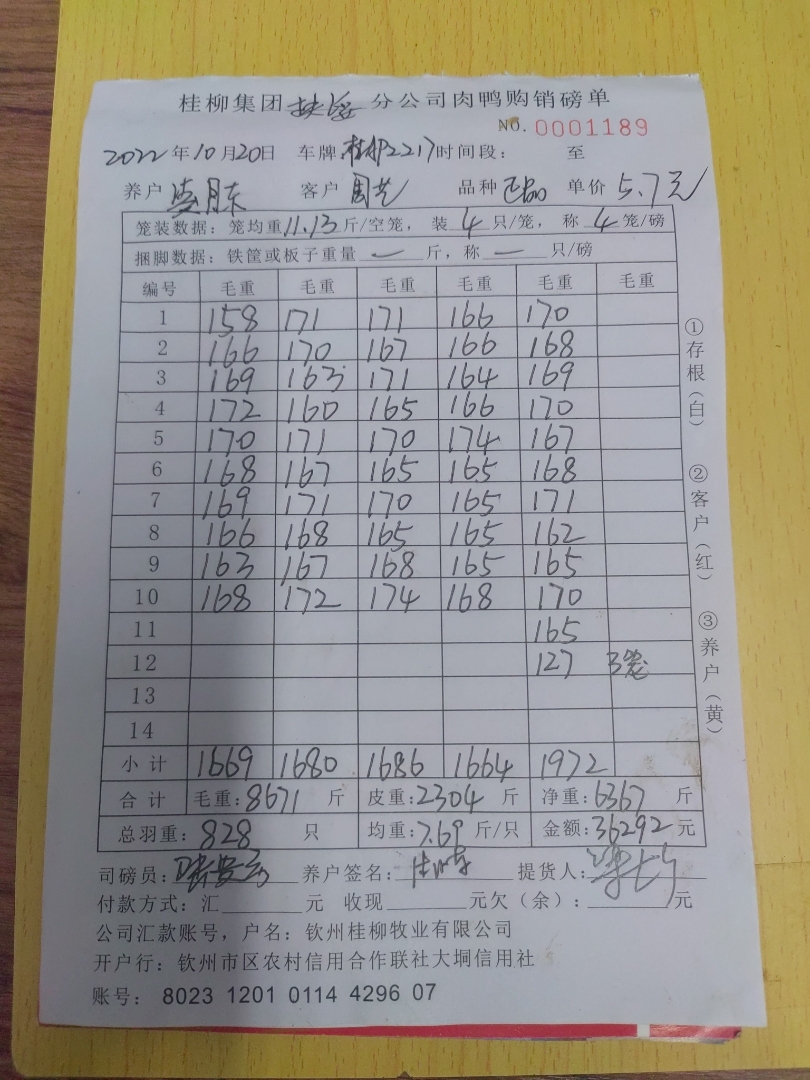 桂柳集团扶绥分公司肉鸭购销磅单
NO. 0001189
2022年10月20日 车牌 桂 2217 时间段： 至
养户 月东 客户 周 品种 正品 单价 5.7元
笼装数据：笼均重11.13斤/空笼，装4只/笼，称4笼/磅
捆脚数据：铁筐或板子重量 — 斤，称 — 只/磅
编号 毛重 毛重 毛重 毛重 毛重 毛重
1 158 171 171 166 170
2 166 170 167 166 168
3 169 163 171 164 169
4 172 160 165 166 170
5 170 171 170 174 167
6 168 167 165 165 168
7 169 171 170 165 171
8 166 168 165 165 162
9 163 167 168 165 165
10 168 172 174 168 170
11 165
12 127 3笼
13
14
小计 1669 1680 1686 1664 1972
合计 毛重：8671斤 皮重：2304斤 净重：6367斤
总羽重：828只 均重：7.69斤/只 金额：36292元
司磅员： 养户签名： 提货人：
付款方式：汇 元 收现 元欠（余）： 元
公司汇款账号，户名：钦州桂柳牧业有限公司
开户行：钦州市区农村信用合作联社大垌信用社
账号： 8023 1201 0114 4296 07
①存根（白）
②客户（红）
③养户（黄）